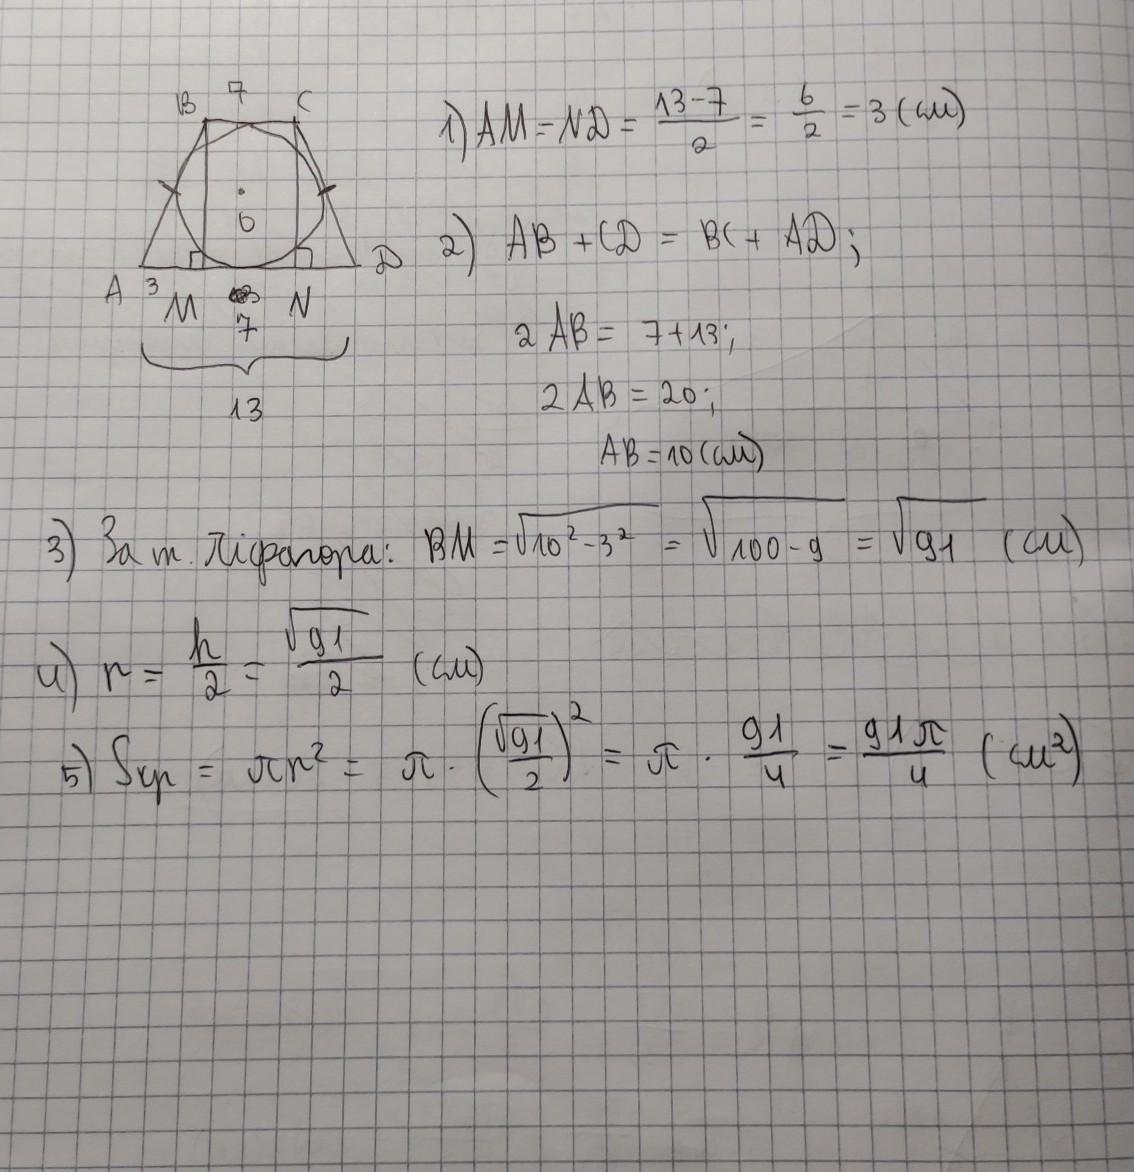 B 7 C
O
A 3 M N D
7
13
1) AM = ND = (13-7)/2 = 6/2 = 3 (см)
2) AB + CD = BC + AD;
2 AB = 7+13;
2 AB = 20;
AB = 10 (см)
3) За т. Піфагора: BM = √(10² - 3²) = √(100 - 9) = √91 (см)
4) r = h/2 = √91/2 (см)
5) Sкр = πr² = π · (√91/2)² = π · 91/4 = 91π/4 (см²)